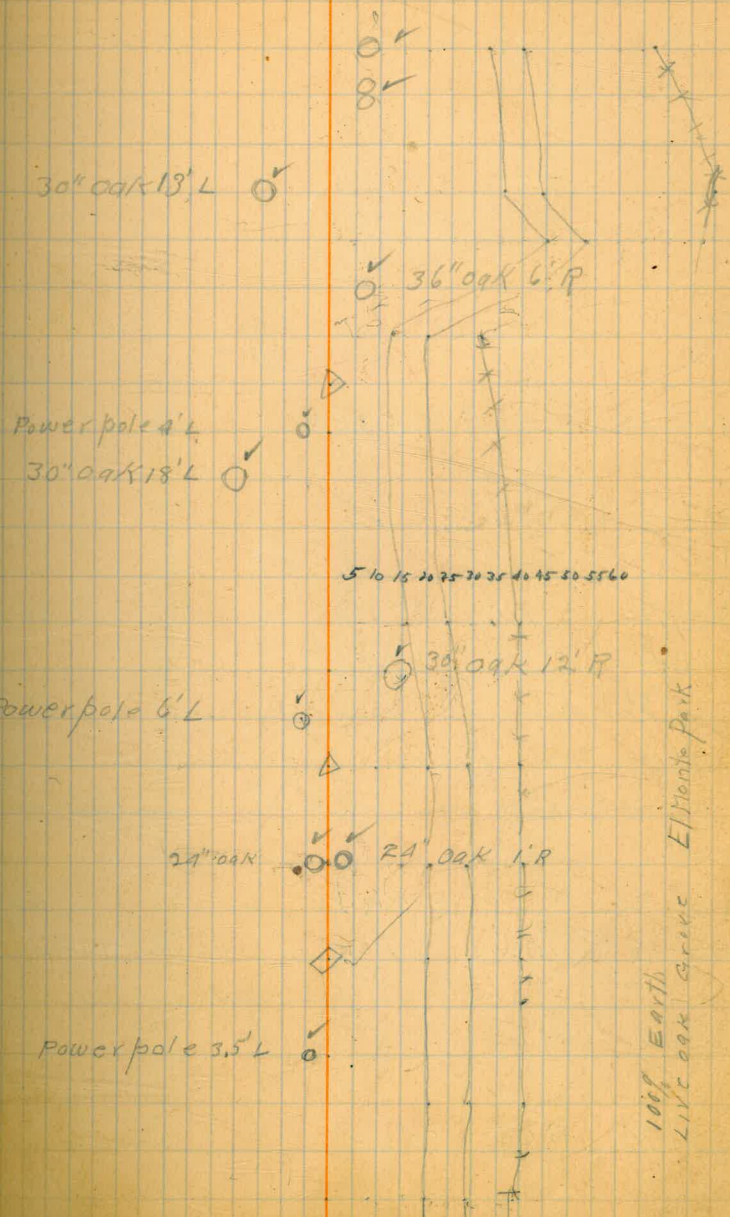 30" oak 13' L
36" oak 6' R
Power pole 4' L
30" oak 18' L
5 10 15 20 25 30 35 40 45 50 55 60
30" oak 12' R
Power pole 6' L
24" oak
24" oak 1' R
Power pole 3.5' L
100% Earth
Live oak Grove El Monte Park